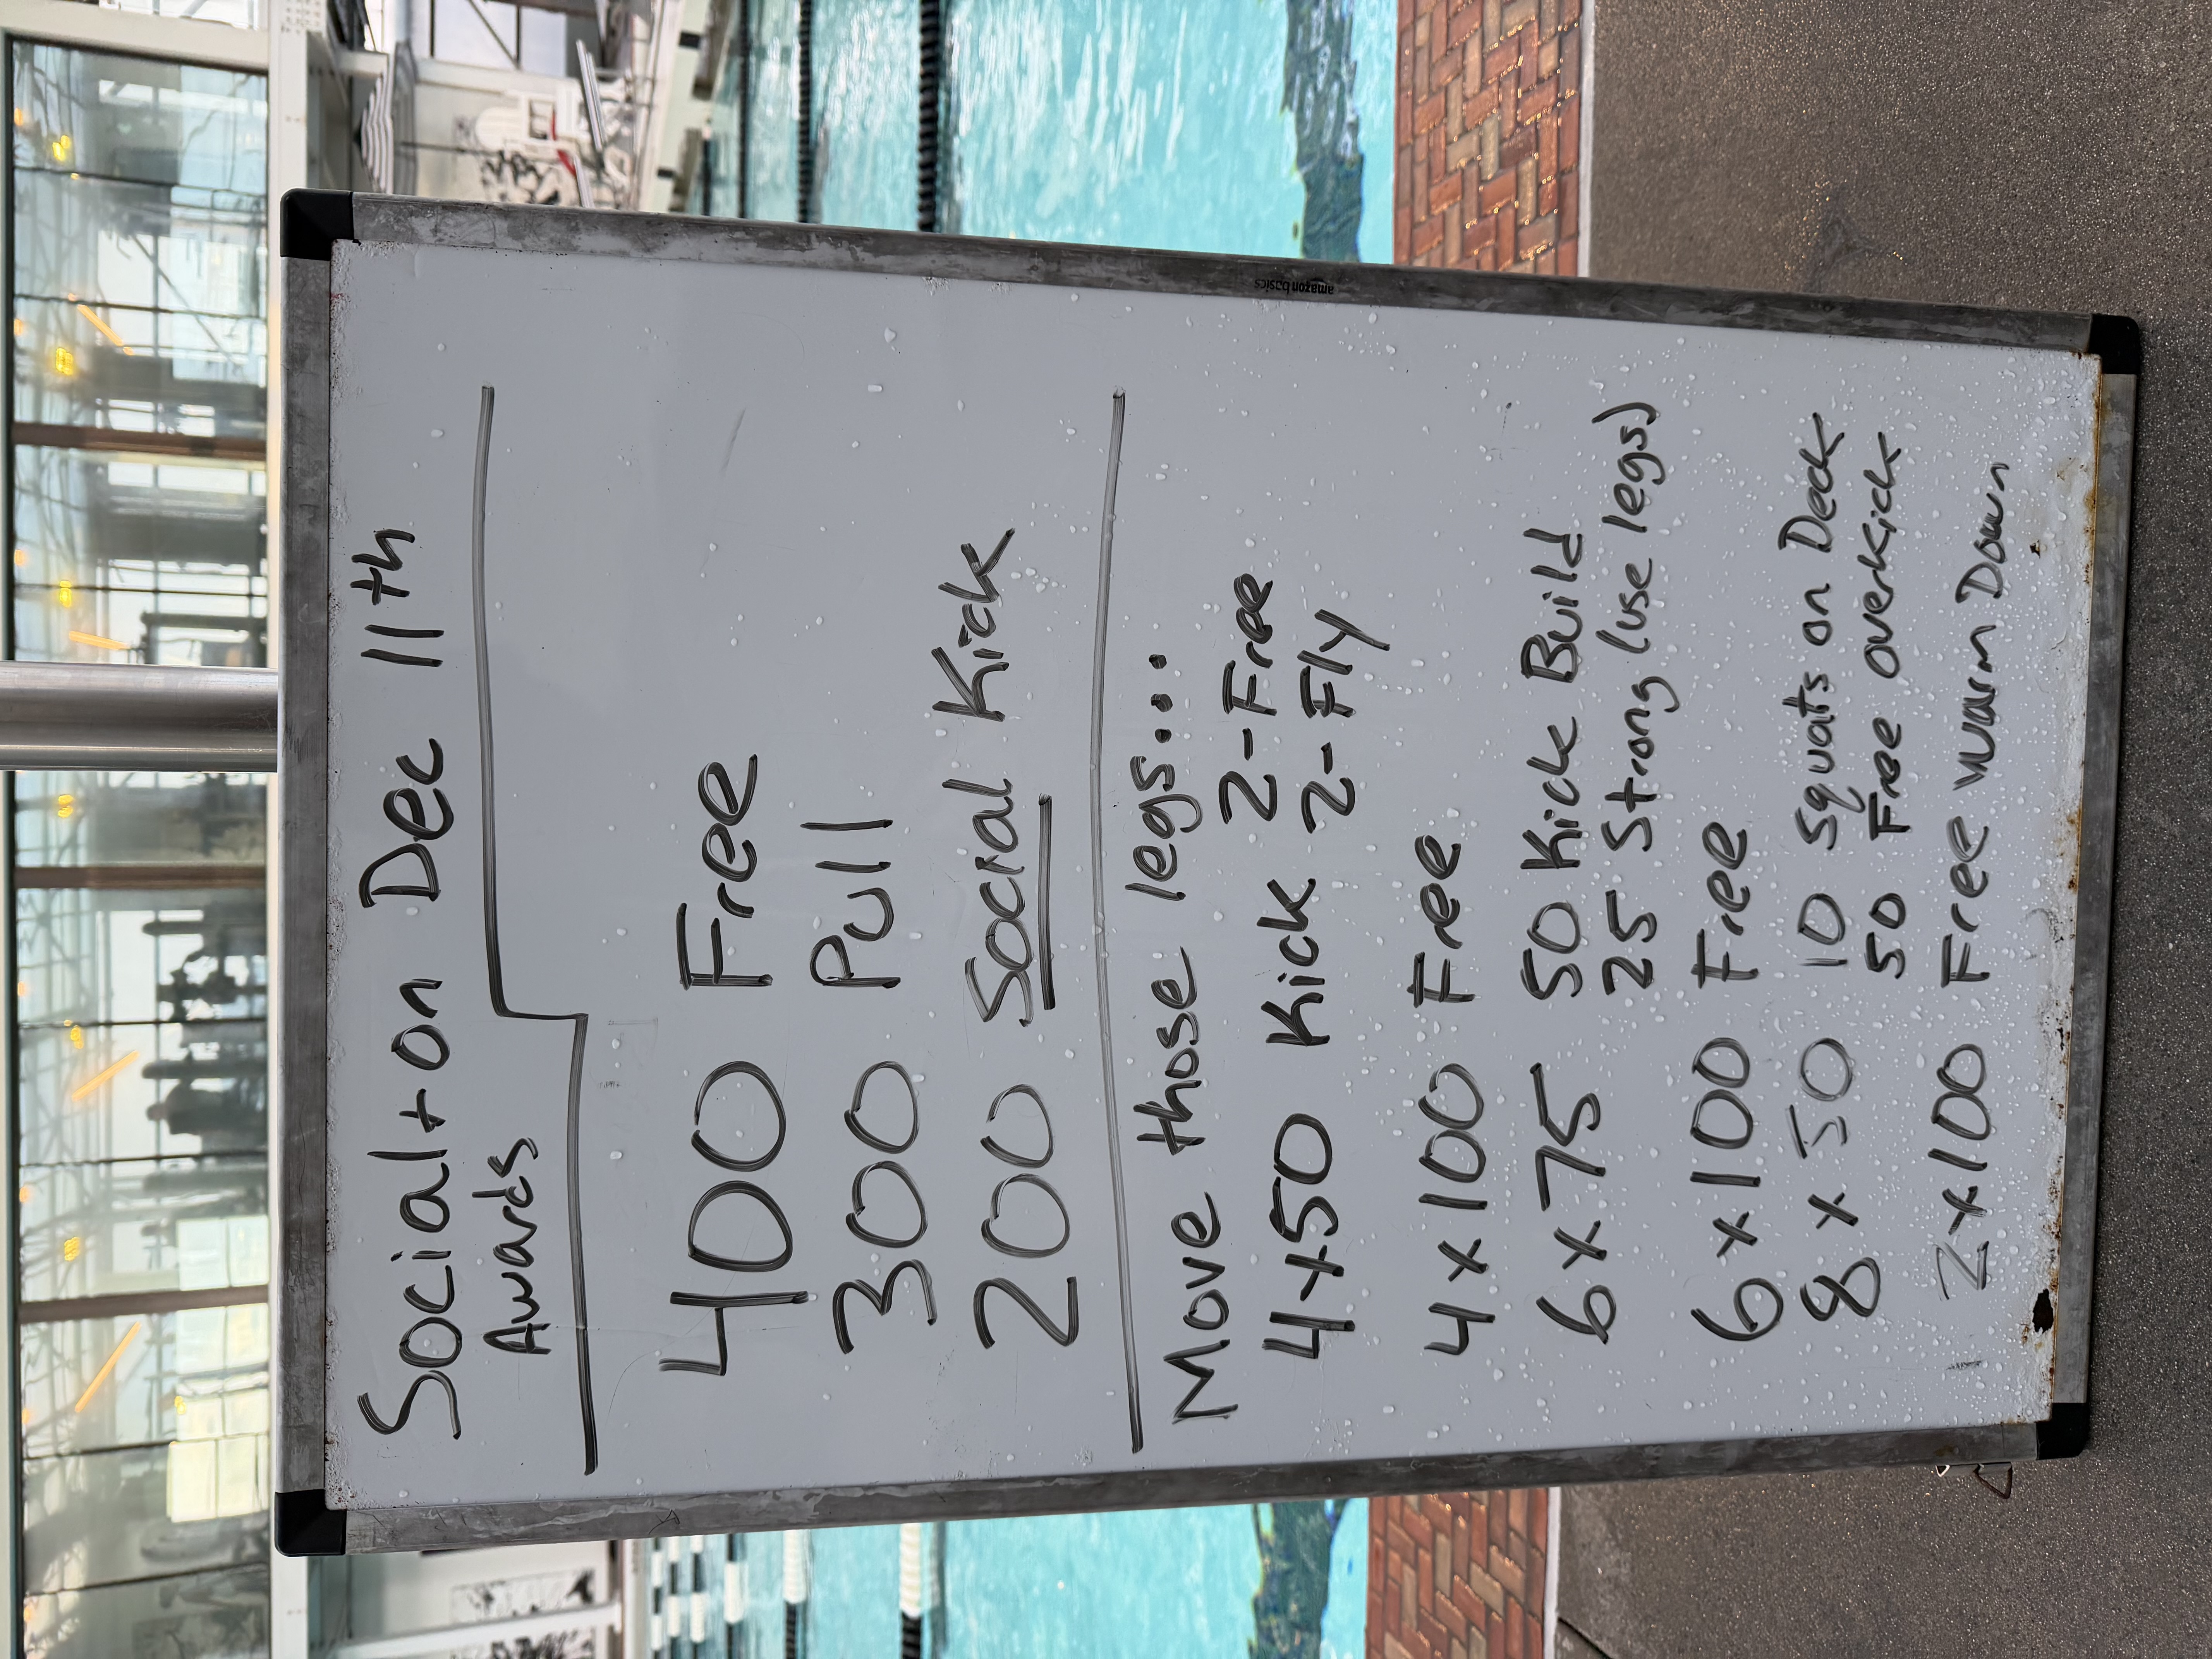 Social + on Dec 11th
Awards
400 Free
300 Pull
200 Social Kick
Move those legs....
4x50 Kick 2-Free
2-Fly
4x100 Free
6x75 50 Kick Build
25 Strong (use legs)
6x100 Free
8x50 10 Squats on Deck
50 Free overkick
2x100 Free warm Down
amazon basics